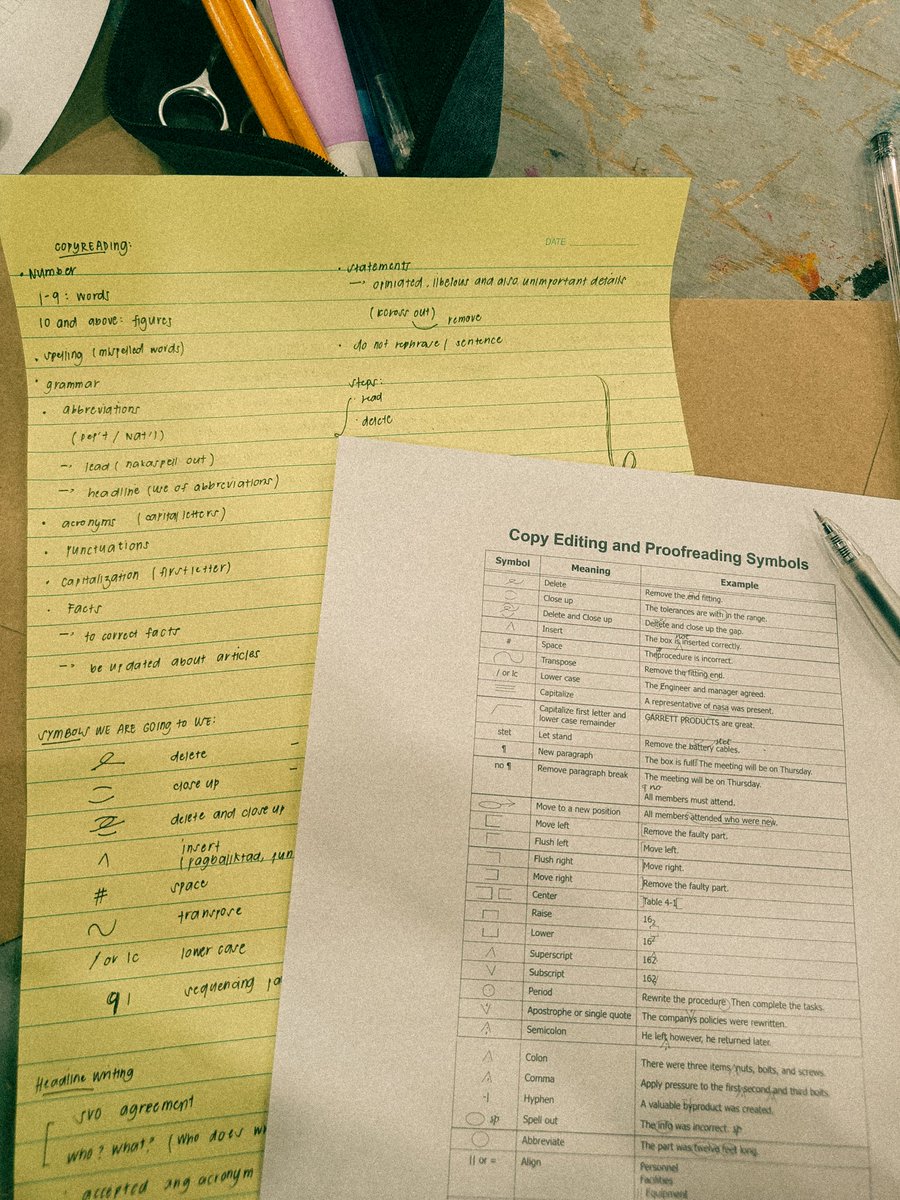 COPYREADING:
DATE
• Number
1-9: words
10 and above: figures
• spelling (mispelled words)
• grammar
• abbreviations
(Dep't / Nat'l)
→ lead ( nakaspell out )
→ headline (use of abbreviations)
• acronyms (capital letters)
• punctuations
• capitalization (first letter)
• Facts
→ to correct facts
→ be updated about articles
• statements
→ opiniated, libelous and also unimportant details
out)
remove
• do not rephrase / sentence
steps:
• read
• delete
SYMBOLS WE ARE GOING TO USE:
delete
close up
delete and close up
^ insert
(pagbaliktad,
# space
transpose
/ or lc lower case
sequencing
Headline writing
SVO agreement
who? what? (who does
accepted ang acronym
Copy Editing and Proofreading Symbols
Symbol Meaning Example
Delete Remove the end fitting.
Close up The tolerances are with in the range.
Delete and Close up Deltete and close up the gap.
^ Insert The box is inserted correctly. not
# Space Theprocedure is incorrect.
Transpose Remove the fitting end.
/ or lc Lower case The Engineer and manager agreed.
Capitalize A representative of nasa was present.
Capitalize first letter and lower case remainder GARRETT PRODUCTS are great.
stet Let stand Remove the battery cables. stet
¶ New paragraph The box is full. The meeting will be on Thursday.
no ¶ Remove paragraph break The meeting will be on Thursday.
no
All members must attend.
Move to a new position All members attended who were new.
Move left Remove the faulty part.
Flush left Move left.
Flush right Move right.
Move right Remove the faulty part.
Center Table 4-1
Raise 162
Lower 162
Superscript 162
Subscript 162
Period Rewrite the procedure Then complete the tasks.
Apostrophe or single quote The companys policies were rewritten.
Semicolon He left however, he returned later.
Colon There were three items nuts, bolts, and screws.
Comma Apply pressure to the first second and third bolts.
Hyphen A valuable byproduct was created.
sp Spell out The info was incorrect. sp
Abbreviate The part was twelve feet long.
|| or = Align Personnel
Facilities
Equipment